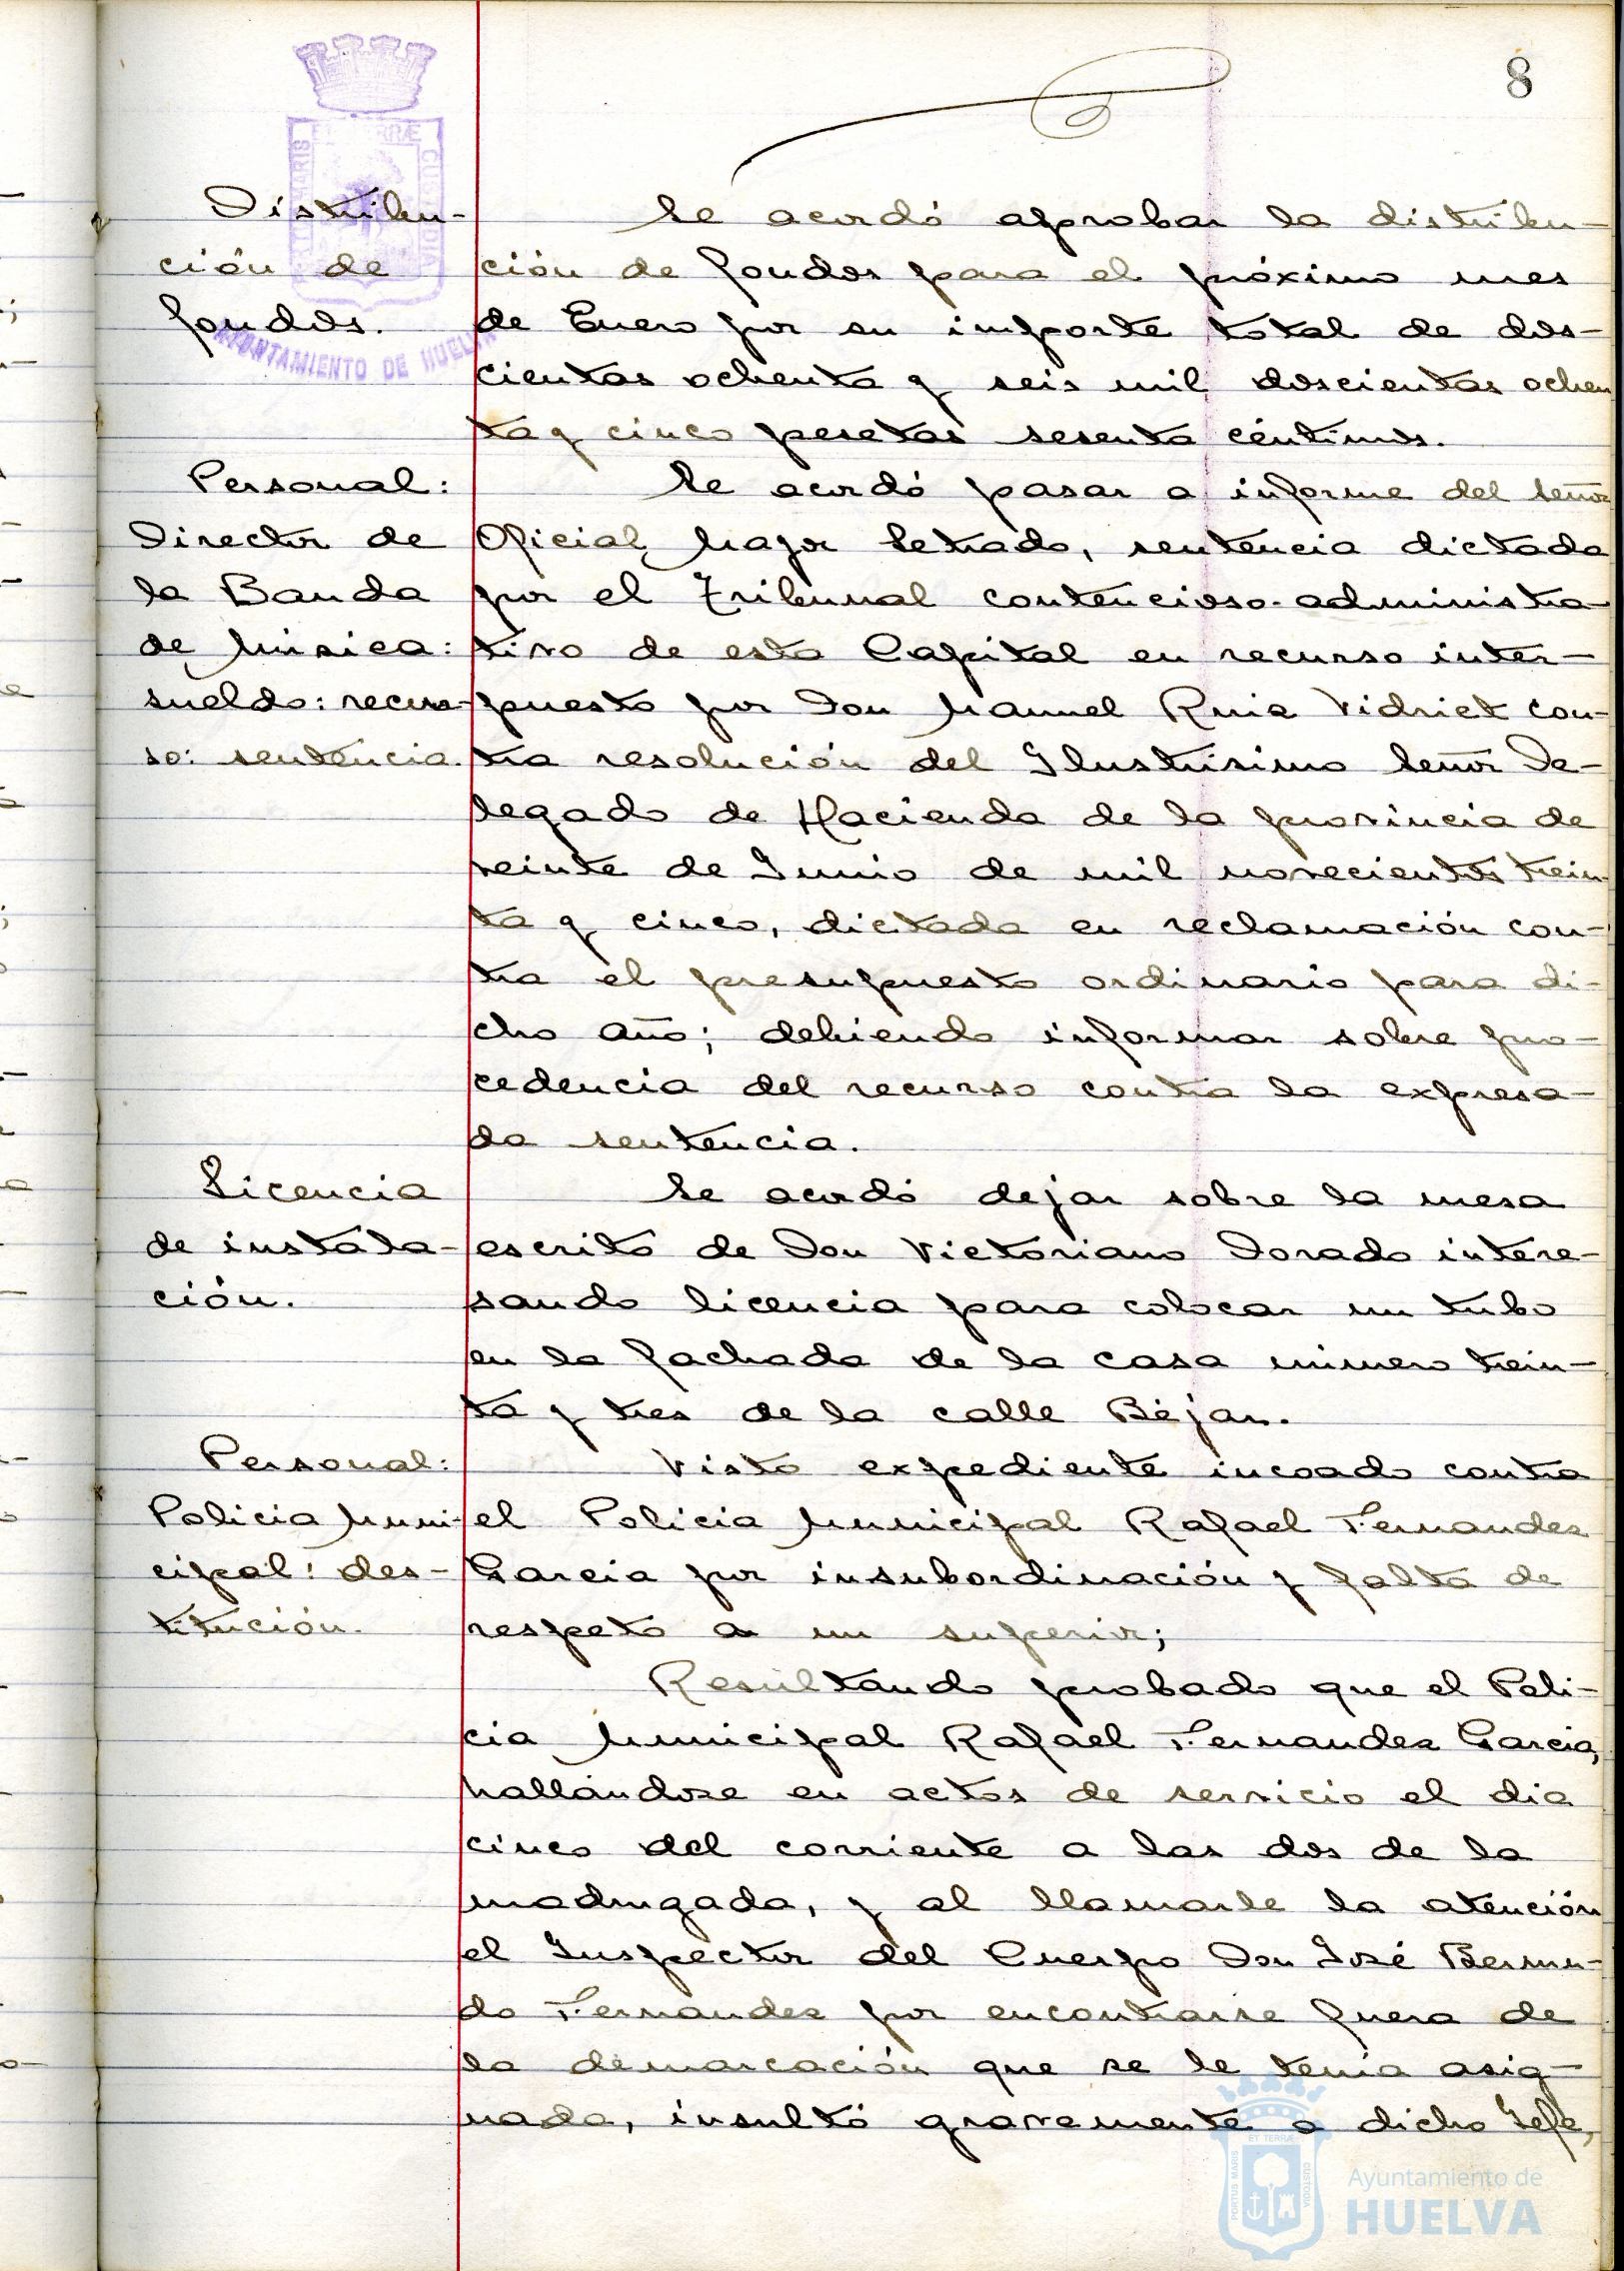 8
Distribu-
ción de
fondos.
Se acordó aprobar la distribu-
ción de fondos para el próximo mes
de Enero por su importe total de dos-
cientas ochenta y seis mil doscientas ochen
ta y cinco pesetas sesenta céntimos.
Personal:
Director de
la Banda
de Música:
sueldo: recur-
so: sentencia.
Se acordó pasar a informe del Señor
Oficial Mayor Letrado, sentencia dictada
por el Tribunal contencioso-administra
tivo de esta Capital en recurso inter-
puesto por Don Manuel Ruiz Vidriet con-
tra resolución del Ilustrísimo Señor De-
legado de Hacienda de la provincia de
veinte de Junio de mil novecientos trein
ta y cinco, dictada en reclamación con-
tra el presupuesto ordinario para di-
cho año; debiendo informar sobre pro-
cedencia del recurso contra la expresa-
da sentencia.
Licencia
de instala-
ción.
Se acordó dejar sobre la mesa
escrito de Don Victoriano Dorado intere-
sando licencia para colocar un tubo
en la fachada de la casa número trein-
ta y tres de la calle Béjar.
Personal:
Policia Muni-
cipal: des-
titución.
Visto expediente incoado contra
el Policia Municipal Rafael Fernandez
Garcia por insubordinación y falta de
respeto a un superior;
Resultando probado que el Poli-
cia Municipal Rafael Fernandez Garcia,
hallándose en actos de servicio el dia
cinco del corriente a las dos de la
madrugada, y al llamarle la atención
el Inspector del Cuerpo Don José Bermu-
do Fernandez por encontrarse fuera de
la demarcación que se le tenia asig-
nada, insultó gravemente a dicho Jefe,
AYUNTAMIENTO DE HUELVA
PORTUS MARIS
ET TERRÆ
CUSTODIA
Ayuntamiento de
HUELVA